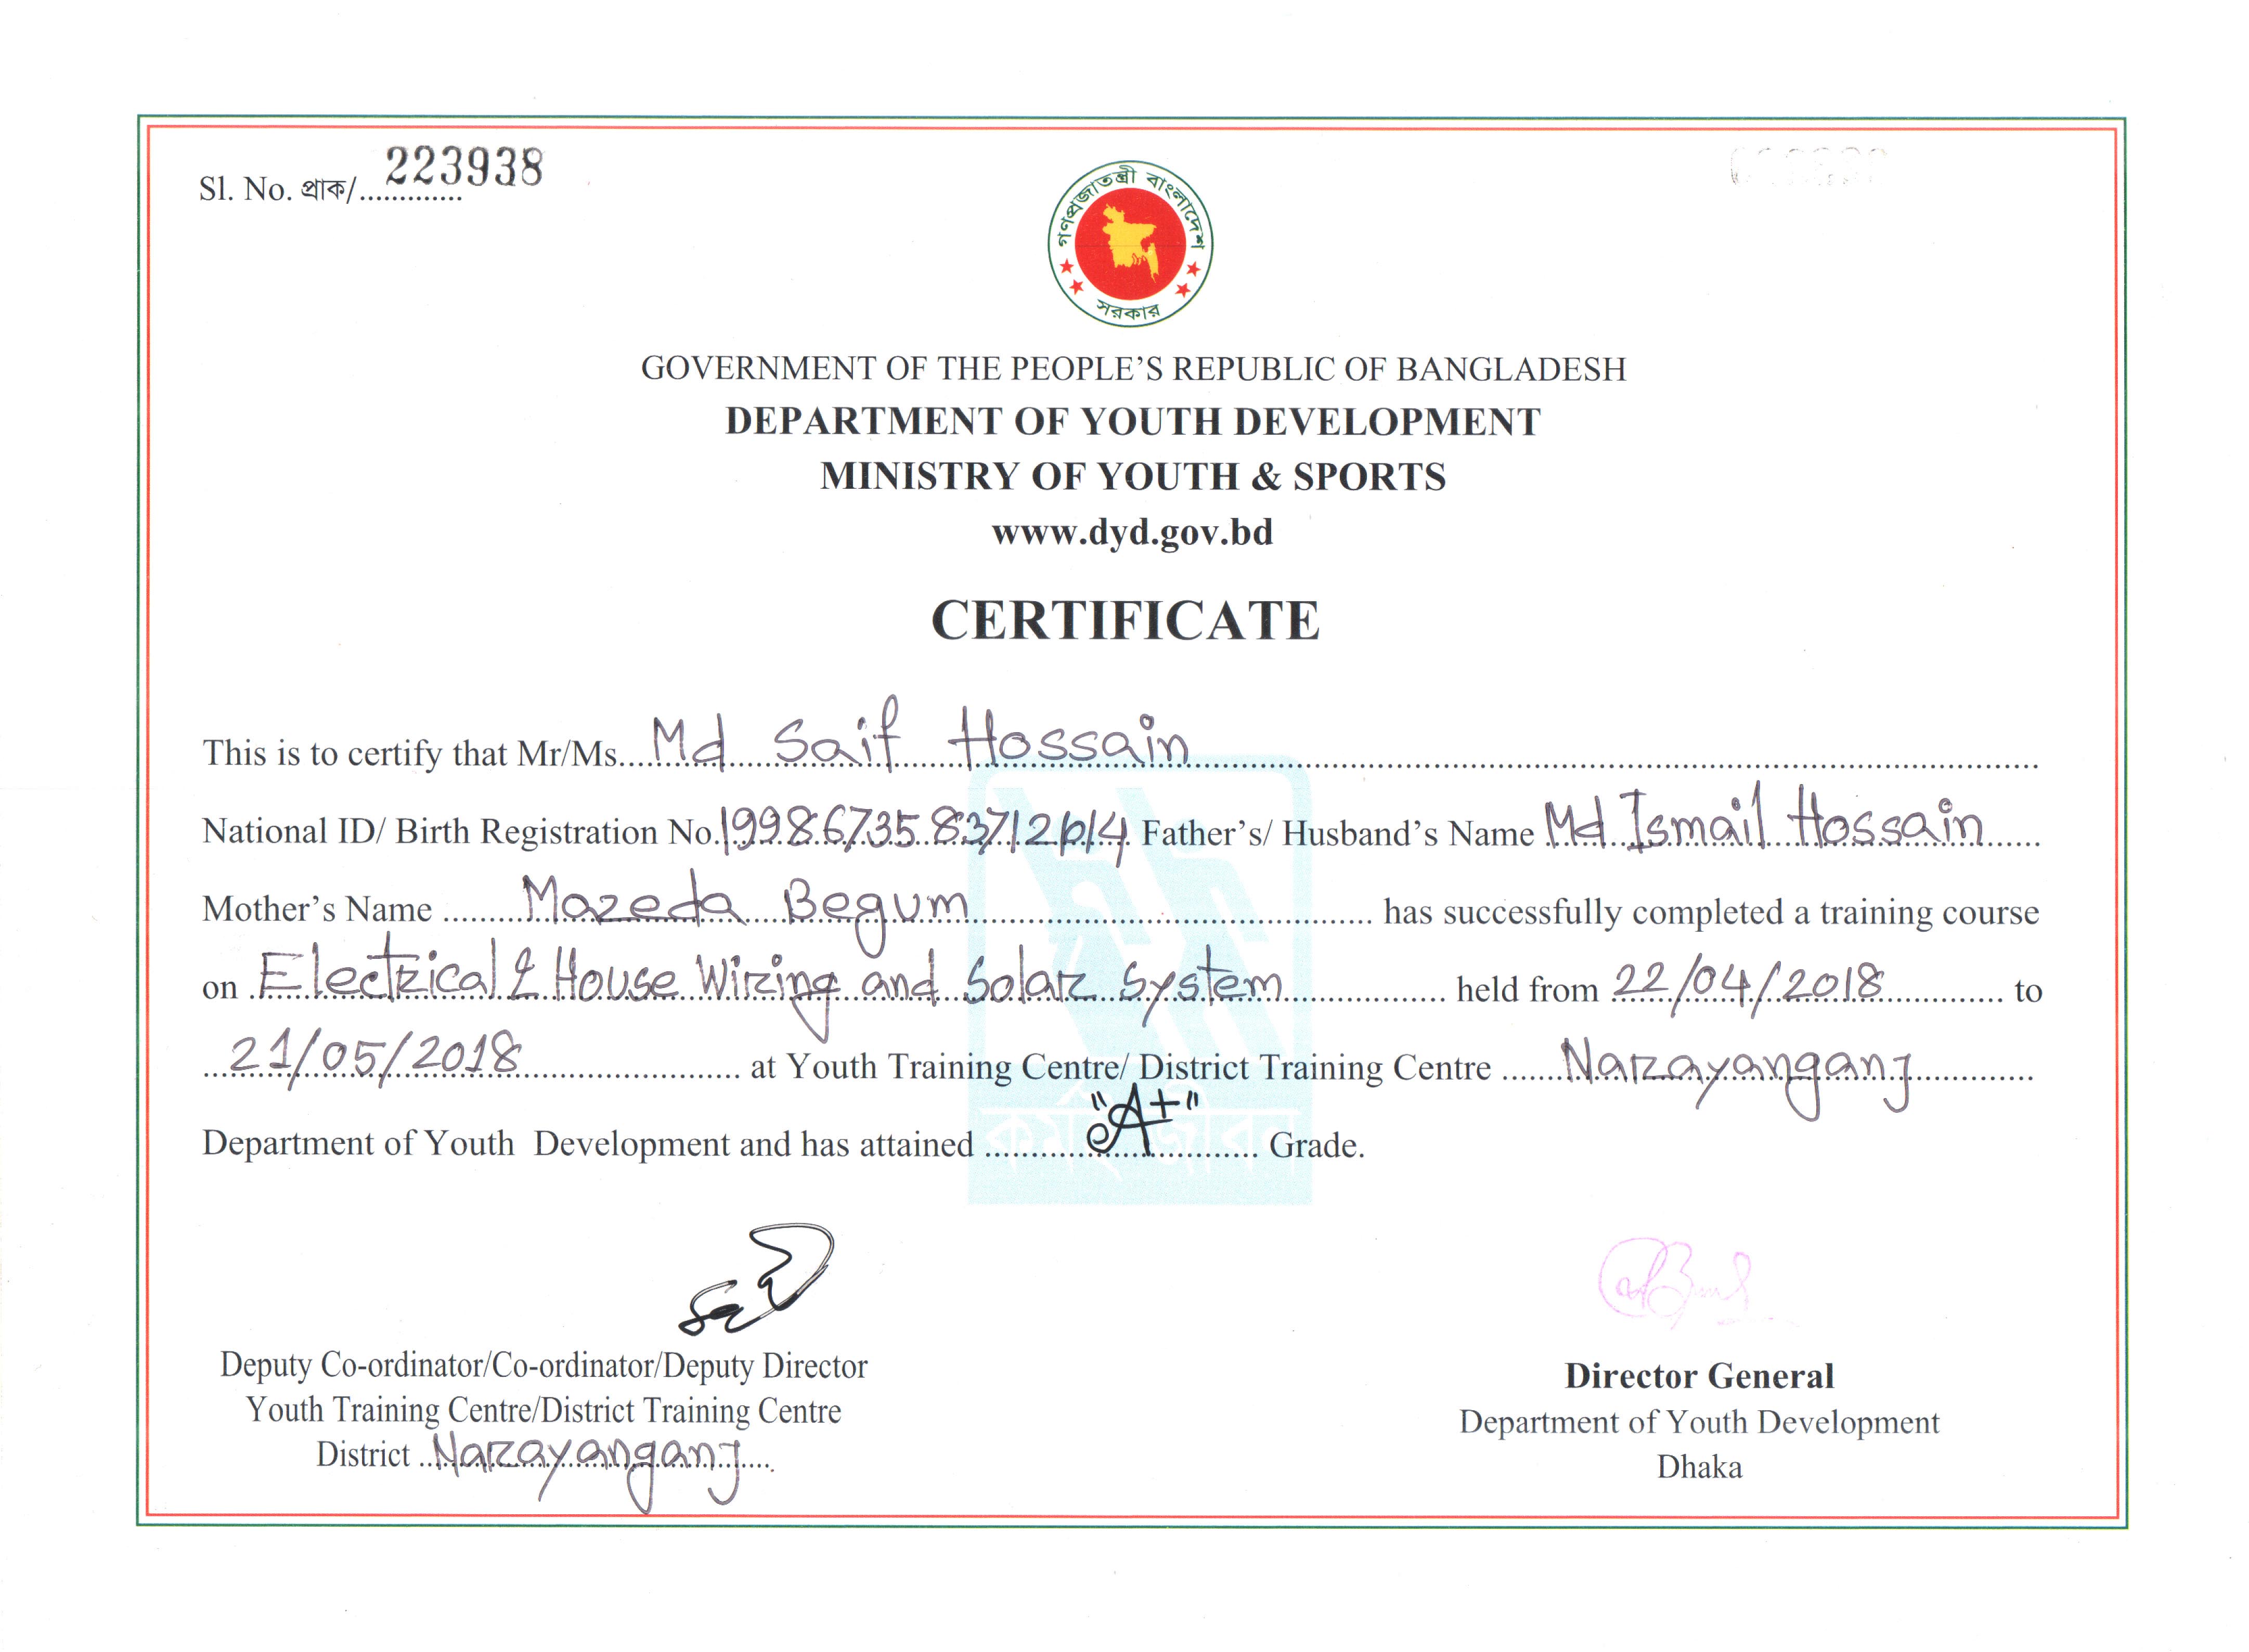 Sl. No. প্রাক/............. 223938
গণপ্রজাতন্ত্রী বাংলাদেশ
সরকার
GOVERNMENT OF THE PEOPLE'S REPUBLIC OF BANGLADESH
DEPARTMENT OF YOUTH DEVELOPMENT
MINISTRY OF YOUTH & SPORTS
www.dyd.gov.bd
CERTIFICATE
This is to certify that Mr/Ms. Md Saif Hossain
National ID/ Birth Registration No. Father's/ Husband's Name Md Ismail Hossain
Mother's Name Mazeda Begum has successfully completed a training course
on Electrical & House Wiring and Solar System held from 22/04/2018 to
21/05/2018 at Youth Training Centre/ District Training Centre Narayanganj
Department of Youth Development and has attained "A+" Grade.
Deputy Co-ordinator/Co-ordinator/Deputy Director
Youth Training Centre/District Training Centre
District Narayanganj
Director General
Department of Youth Development
Dhaka